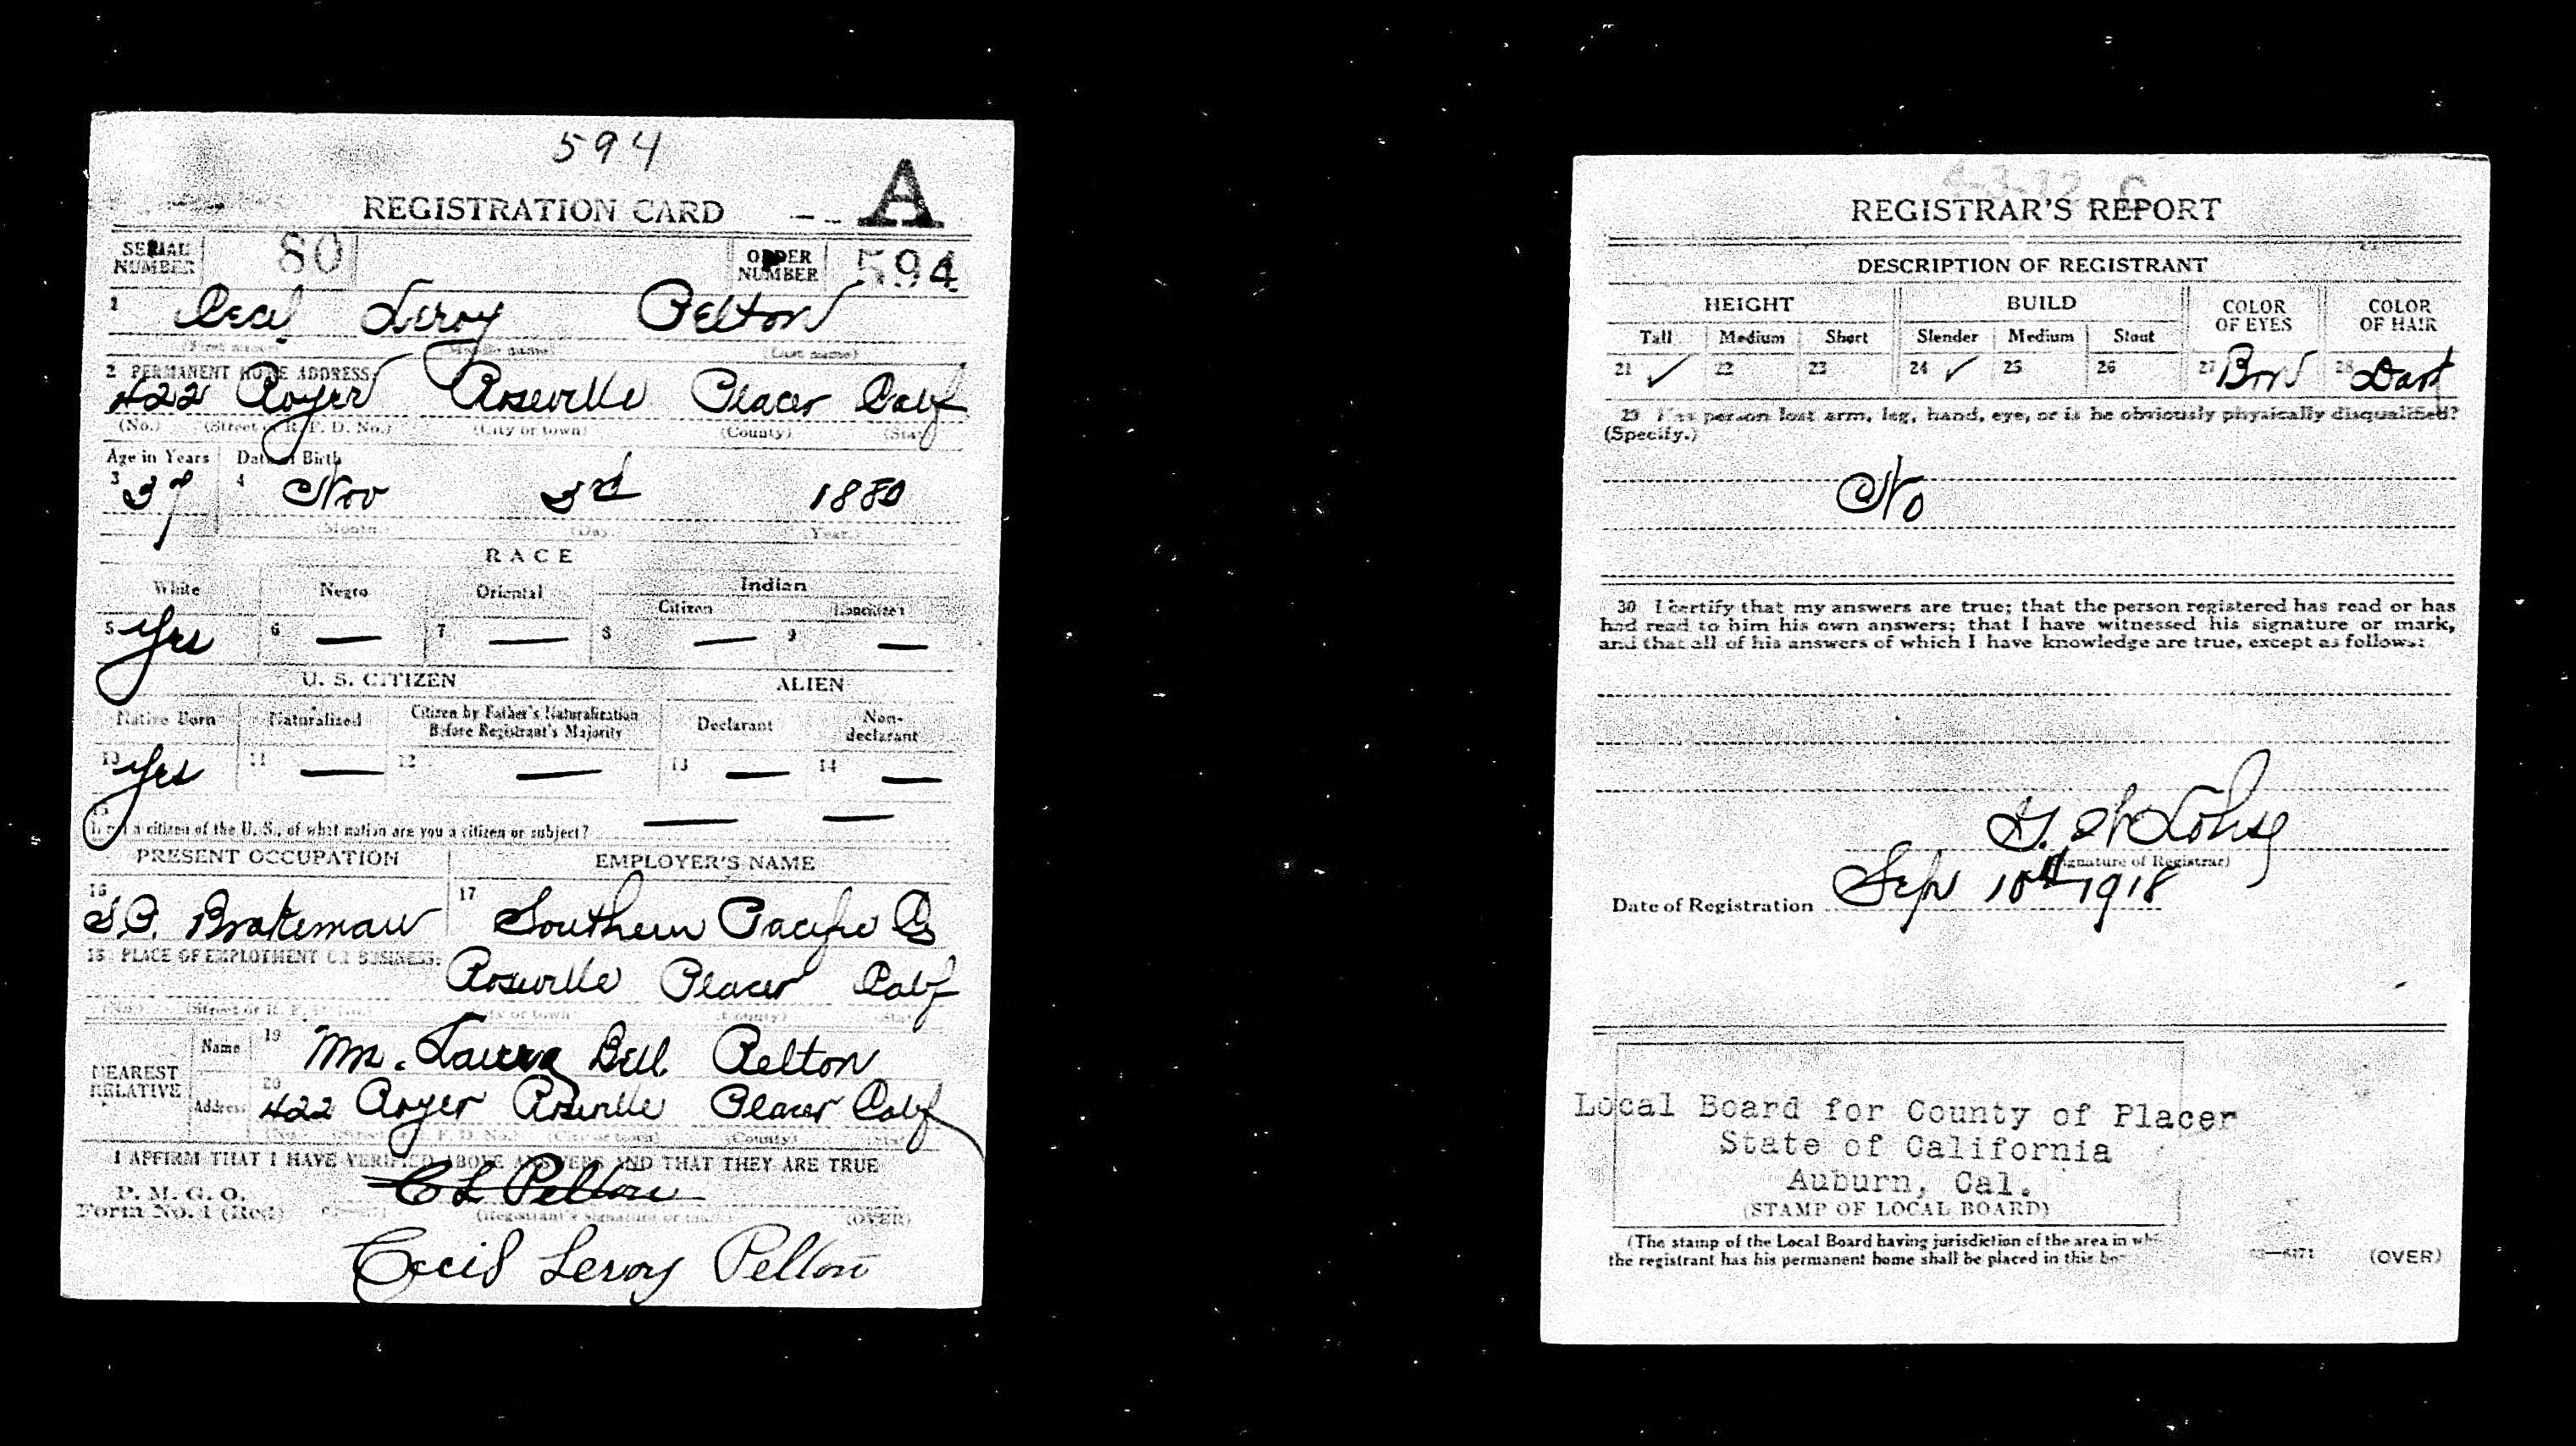 594
A
REGISTRATION CARD
SERIAL NUMBER 80 ORDER NUMBER 594
1 Cecil Leroy Pelton
(First name) (Middle name) (Last name)
2 PERMANENT HOME ADDRESS:
422 Royer Roseville Placer Calif
(No.) (Street or R. F. D. No.) (City or town) (County) (State)
Age in Years Date of Birth
3 37 4 Nov 3rd 1880
(Month.) (Day.) (Year.)
RACE
White Negro Oriental Indian
Citizen Noncitizen
5 Yes 6 — 7 — 8 — 9 —
U. S. CITIZEN ALIEN
Native Born Naturalized Citizen by Father's Naturalization Before Registrant's Majority Declarant Non-declarant
10 Yes 11 — 12 — 13 — 14 —
15
If not a citizen of the U. S., of what nation are you a citizen or subject? — —
PRESENT OCCUPATION EMPLOYER'S NAME
16 S.P. Brakeman 17 Southern Pacific Co
18 PLACE OF EMPLOYMENT OR BUSINESS:
Roseville Placer Calif
(No.) (Street or R. F. D. No.) (City or town) (County) (State)
NEAREST RELATIVE
Name 19 Mrs. Laura Bell Pelton
Address 20 422 Royer Roseville Placer Calif
(No.) (Street or R. F. D. No.) (City or town) (County) (State)
I AFFIRM THAT I HAVE VERIFIED ABOVE ANSWERS AND THAT THEY ARE TRUE
C L Pelton
P. M. G. O.
Form No. 1 (Red) (Registrant's signature or mark) (OVER)
Cecil Leroy Pelton
REGISTRAR'S REPORT
DESCRIPTION OF REGISTRANT
HEIGHT BUILD COLOR OF EYES COLOR OF HAIR
Tall Medium Short Slender Medium Stout
21 ✓ 22 23 24 ✓ 25 26 27 Brn 28 Dark
29 Has person lost arm, leg, hand, eye, or is he obviously physically disqualified?
(Specify.)
No
30 I certify that my answers are true; that the person registered has read or has
had read to him his own answers; that I have witnessed his signature or mark,
and that all of his answers of which I have knowledge are true, except as follows:
(Signature of Registrar)
Date of Registration Sep 10th 1918
Local Board for County of Placer
State of California
Auburn, Cal.
(STAMP OF LOCAL BOARD)
(The stamp of the Local Board having jurisdiction of the area in
the registrant has his permanent home shall be placed in this
(OVER)